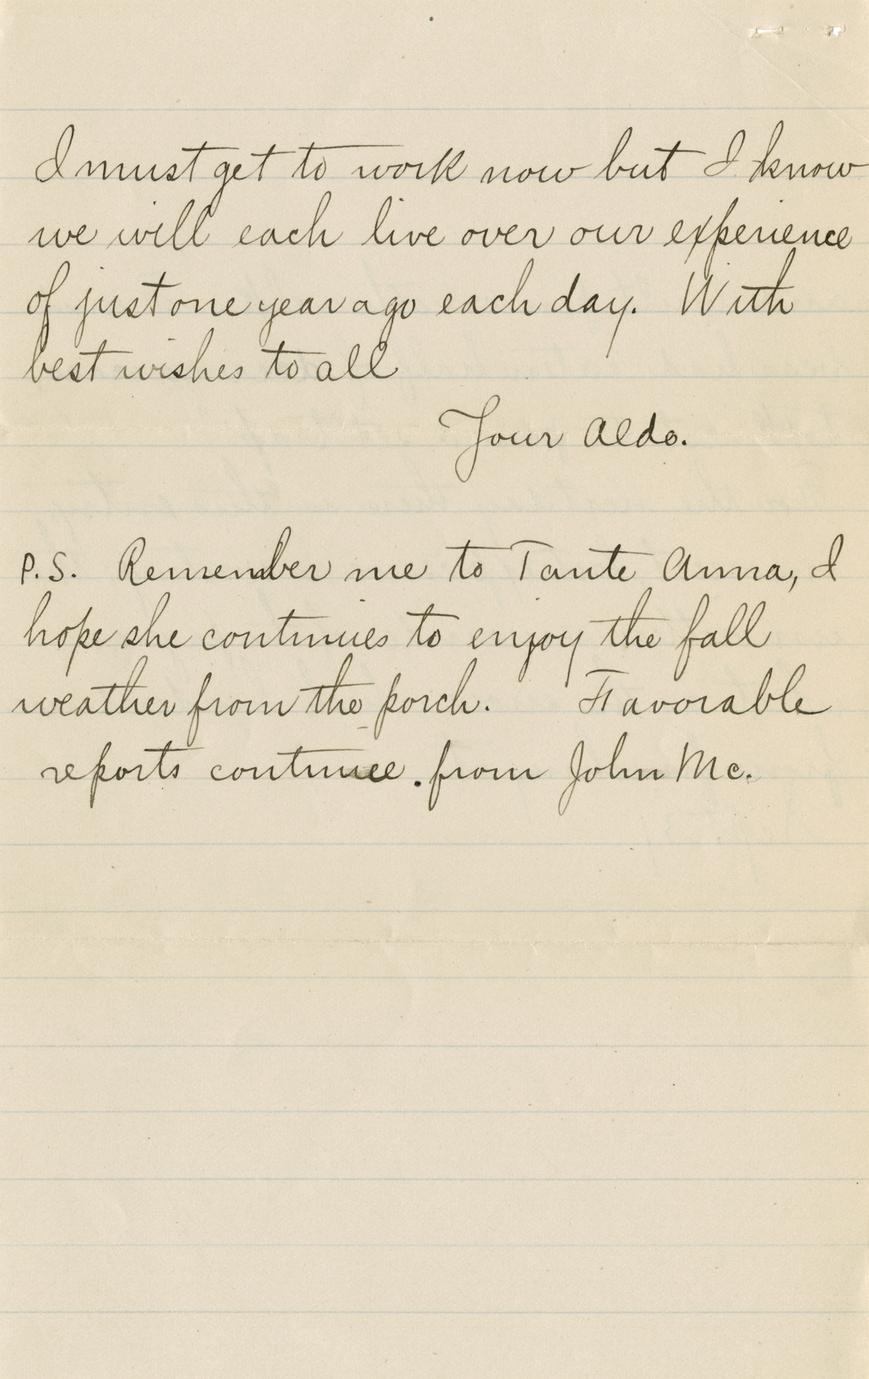 I must get to work now but I know
we will each live over our experience
of just one year ago each day. With
best wishes to all
Your Aldo.
P.S. Remember me to Tante Anna, I
hope she continues to enjoy the fall
weather from the porch. Favorable
reports continue. from John Mc.